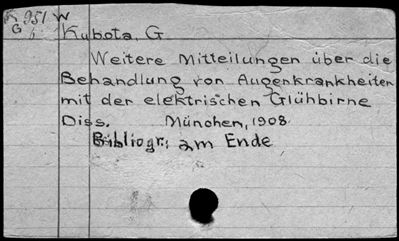 951 W
G
Kubota, G
Weitere Mitteilungen über die
Behandlung von Augenkrankheiten
mit der elektrischen Glühbirne
Diss. München, 1908.
Bibliogr.: am Ende